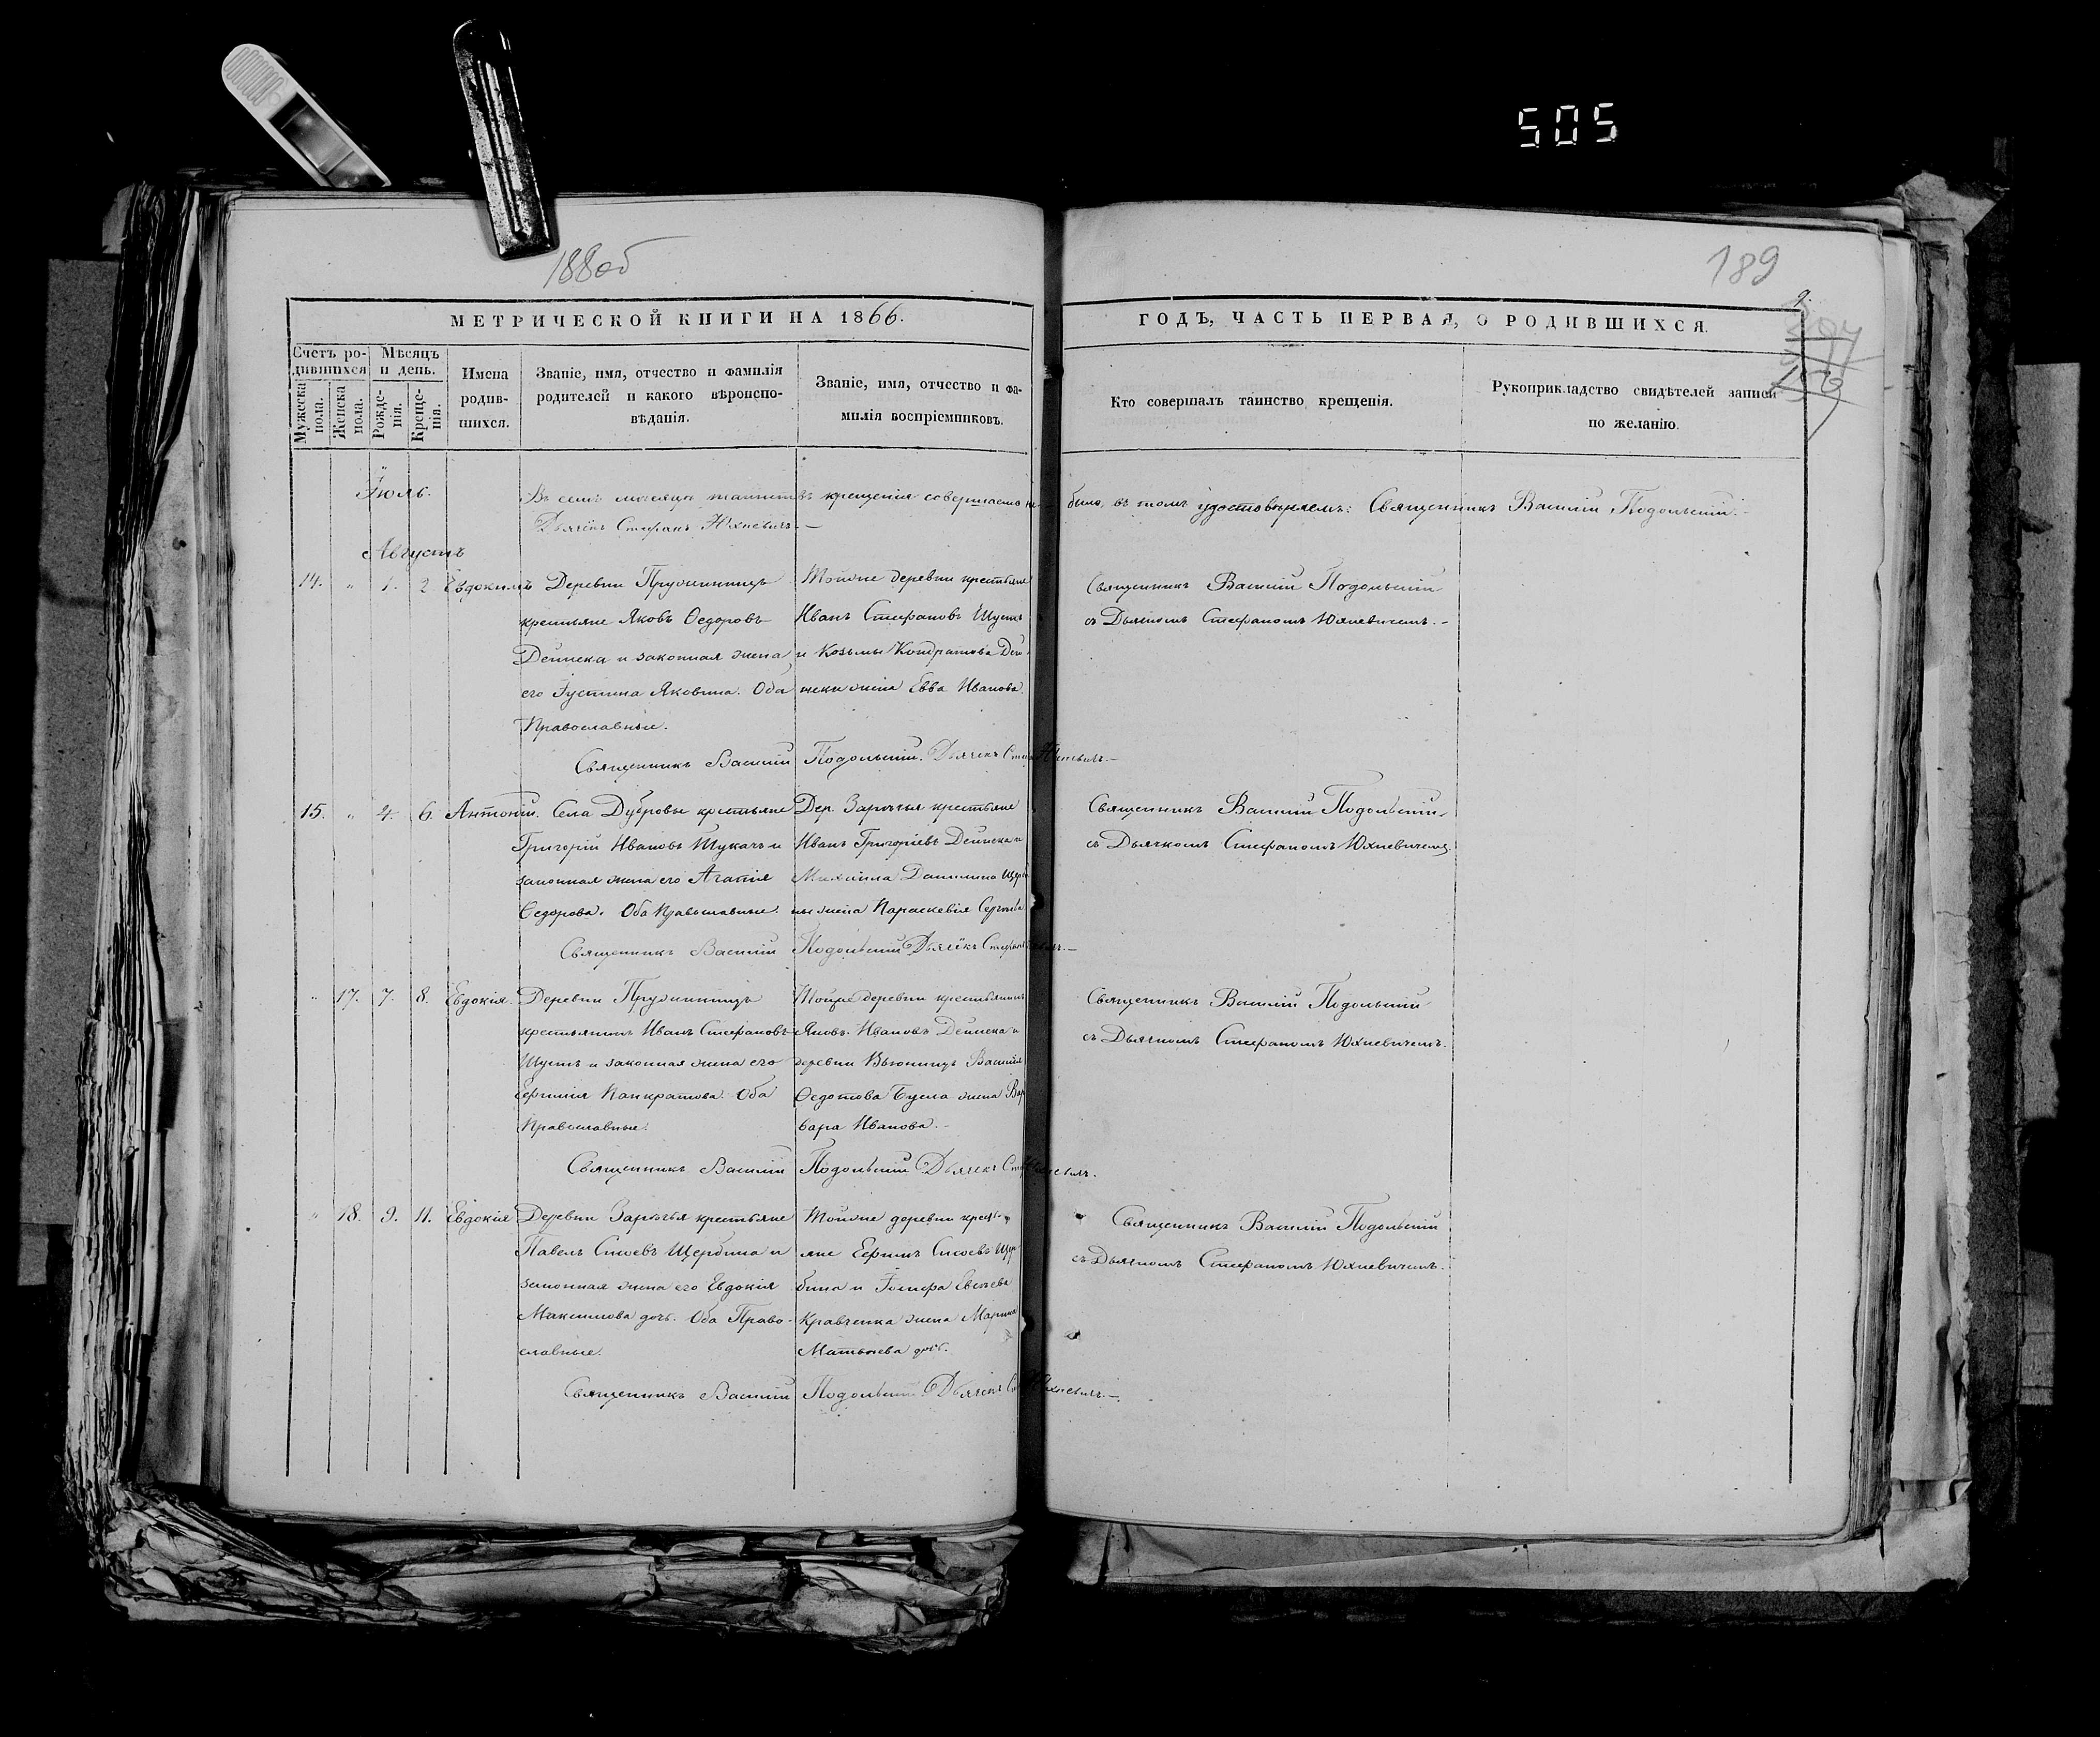 505
188об
189
9.
МЕТРИЧЕСКОЙ КНИГИ НА 1866.
ГОДЪ, ЧАСТЬ ПЕРВАЯ, О РОДИВШИХСЯ.
Счетъ родившихся
Мужеска пола.
Женска пола.
Мѣсяцъ и день.
Рожденія.
Крещенія.
Имена родившихся.
Званіе, имя, отчество и фамилія
родителей и какого вѣроисповѣданія.
Званіе, имя, отчество и фамилія воспріемниковъ.
Кто совершалъ таинство крещенія.
Рукоприкладство свидѣтелей записи
по желанію.
Іюль.
Въ семъ мѣсяцѣ таинствъ крещенія совершаемо не было, въ томъ удостовѣряемъ: Священникъ Василій Подольскій.
Дьячекъ Стефанъ Юхневичъ.
Августъ
14. " 1. 2 Евдокимъ
Деревни Прудкинницъ
крестьяне Яковъ Ѳедоровъ
Дейнека и законная жена
его Іустина Яковлева. Оба
Православные.
Тойже деревни крестьяне
Иванъ Стефановъ Шустъ
и Козьмы Кондратова Дей-
неки жена Евва Иванова.
Священникъ Василій Подольскій
съ Дьячкомъ Стефаномъ Юхневичемъ.
Священникъ Василій Подольскій. Дьячекъ Стеф. Юхневичъ.
15. " 4. 6. Антоній.
Села Дубровы крестьяне
Григорій Ивановъ Тукачъ и
законная жена его Агапія
Ѳедорова. Оба Православные.
Дер. Зарѣчья крестьяне
Иванъ Григоріевъ Дейнека и
Михаила Данилова Щерби-
ны жена Параскевія Сергѣева
Священникъ Василій Подольскій
съ Дьячкомъ Стефаномъ Юхневичемъ.
Священникъ Василій Подольскій Дьячекъ Стефанъ Юхневичъ.
" 17. 7. 8. Евдокія.
Деревни Прудкинницъ
крестьянинъ Иванъ Стефановъ
Шустъ и законная жена его
Ефимія Панкратова. Оба
Православные.
Тойже деревни крестьянинъ
Яковъ Ивановъ Дейнека и
деревни Вьюницъ Василія
Ѳедотова Бусла жена Вар
вара Иванова.
Священникъ Василій Подольскій
съ Дьячкомъ Стефаномъ Юхневичемъ.
Священникъ Василій Подольскій Дьячекъ Стеф. Юхневичъ.
" 18. 9. 11. Евдокія
Деревни Зарѣчья крестьяне
Павелъ Сысоевъ Щербина и
законная жена его Евдокія
Максимова дочь. Оба Право-
славные.
Тойже деревни кресть-
яне Ефимъ Сысоевъ Щер
бина и Іосифа Евсѣева
Кравченка жена Марина
Матвѣева дочь.
Священникъ Василій Подольскій
съ Дьячкомъ Стефаномъ Юхневичемъ.
Священникъ Василій Подольскій Дьячекъ Ст. Юхневичъ.